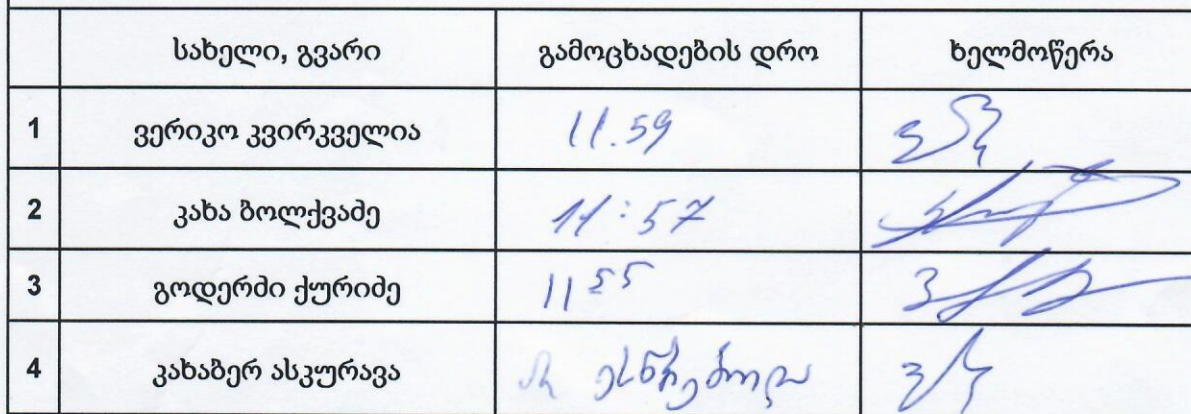 სახელი, გვარი გამოცხადების დრო ხელმოწერა
1 ვერიკო კვირკველია 11.59
2 კახა ბოლქვაძე 11:57
3 გოდერძი ქურიძე 11 55
4 კახაბერ ასკურავა არ ესწრებოდა